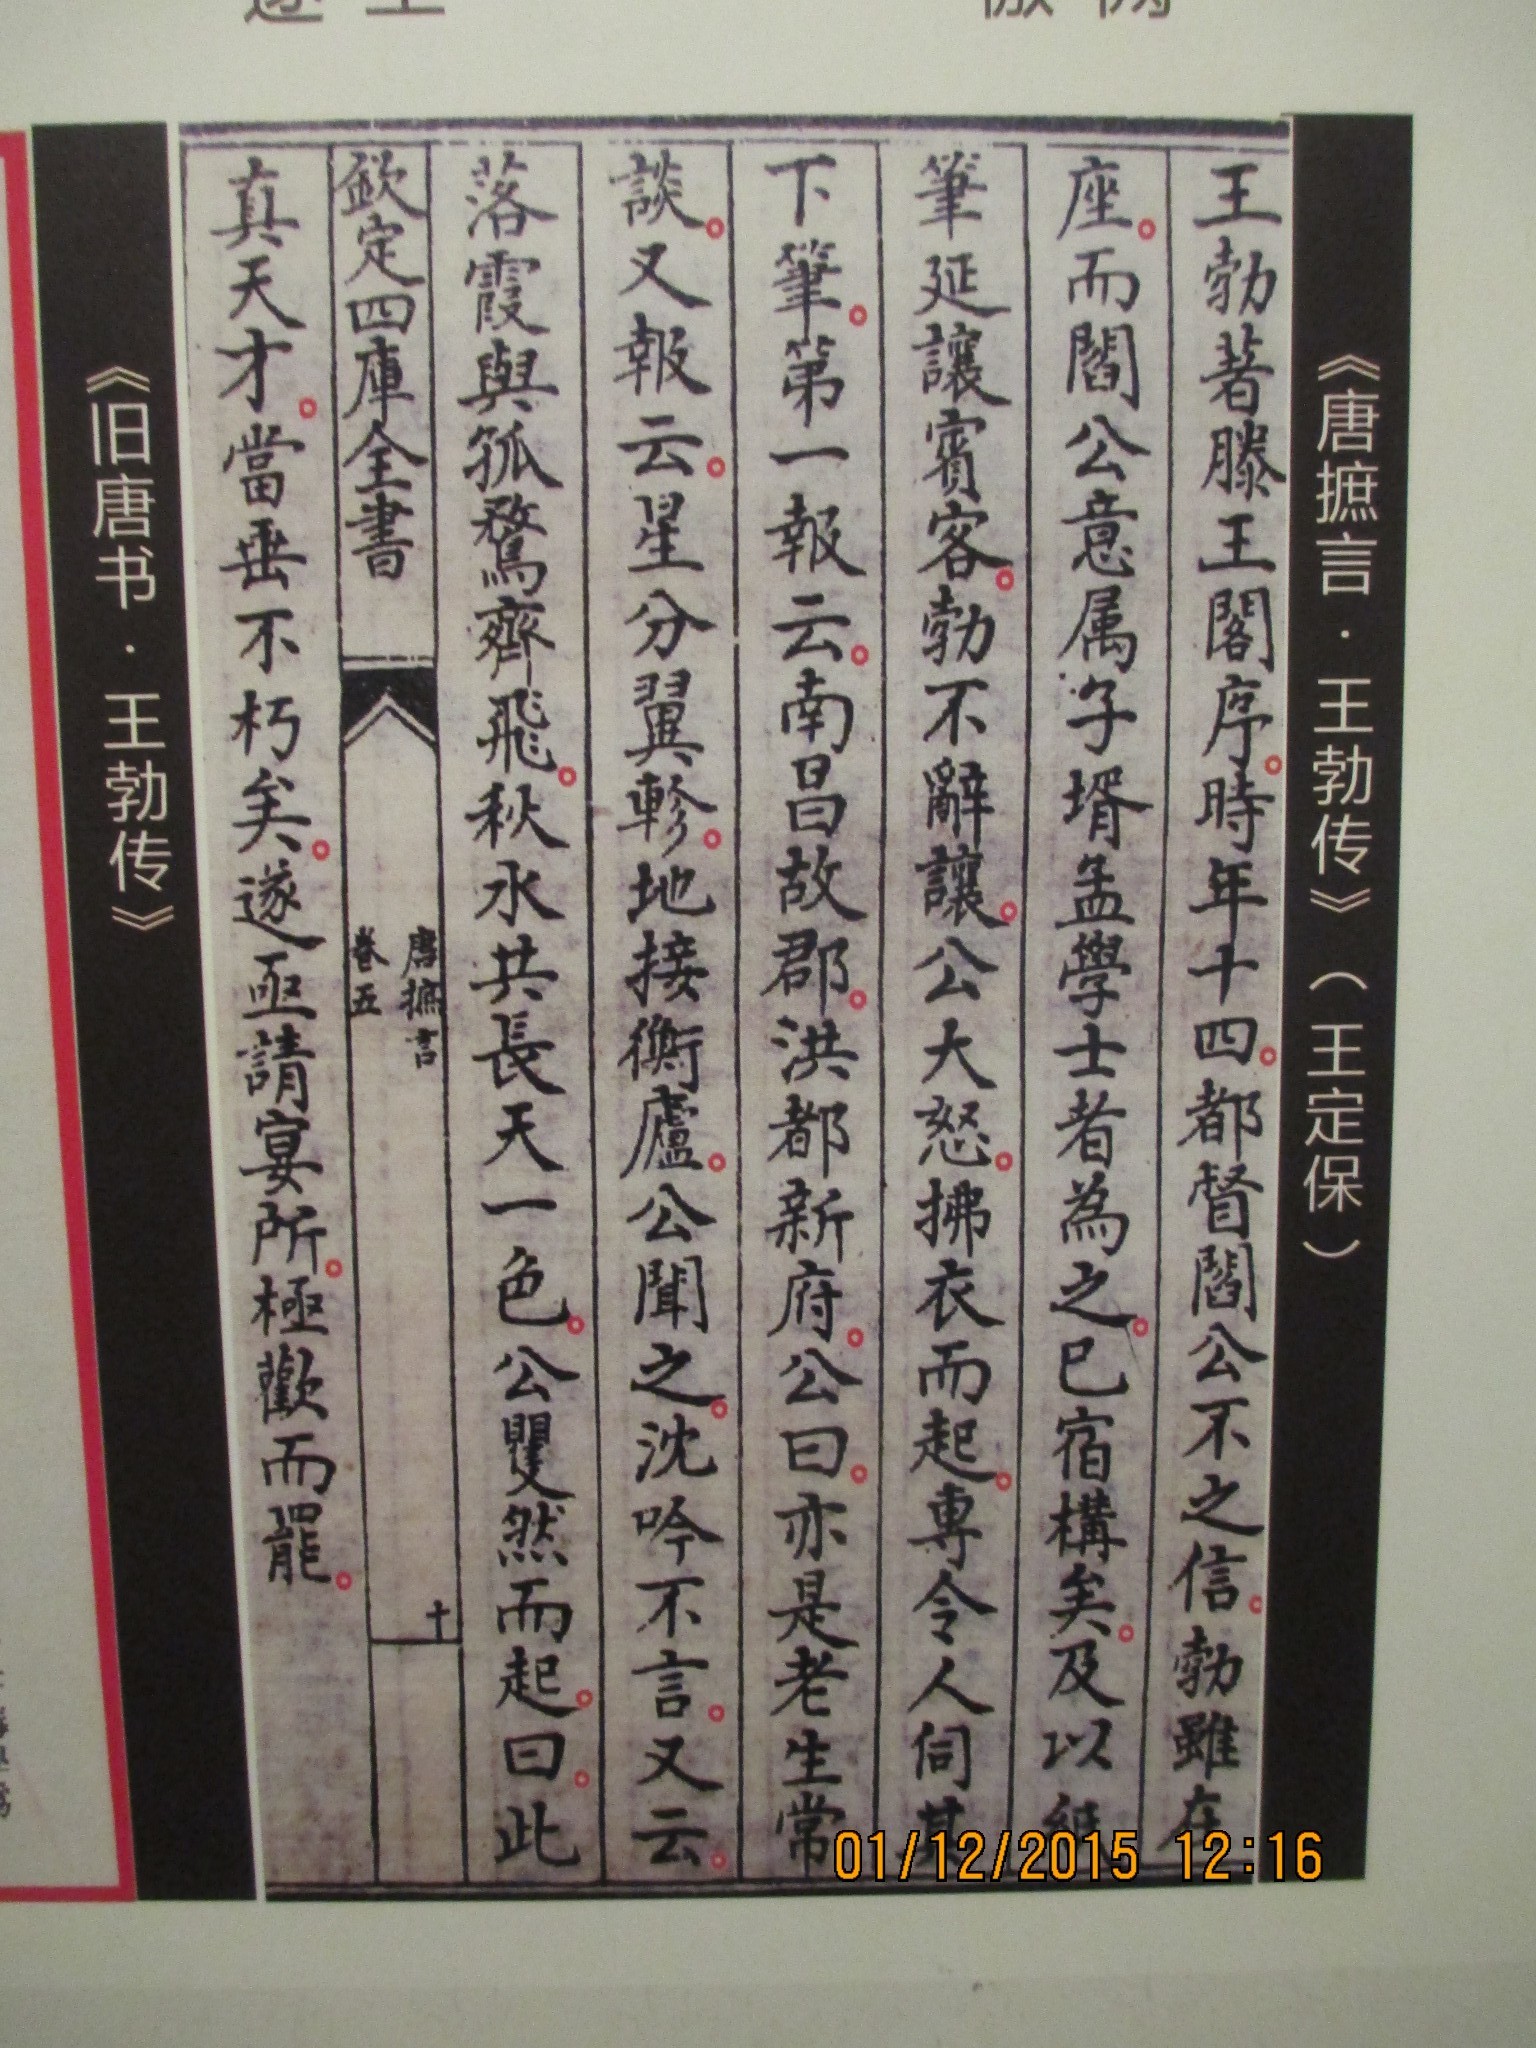 《唐摭言·王勃传》（王定保）
王勃著滕王閣序。時年十四。都督閻公不之信。勃雖在
座。而閻公意属子壻孟學士者為之。已宿構矣。及以紙
筆延讓賓客。勃不辭讓。公大怒。拂衣而起。專令人伺其
下筆。第一報云。南昌故郡。洪都新府。公曰。亦是老生常
談。又報云。星分翼軫。地接衡廬。公聞之。沈吟不言。又云。
落霞與孤鶩齊飛。秋水共長天一色。公矍然而起。曰。此
欽定四庫全書
唐摭言
卷五
十
真天才。當垂不朽矣。遂亟請宴所。極歡而罷。
《旧唐书·王勃传》
01/12/2015 12:16